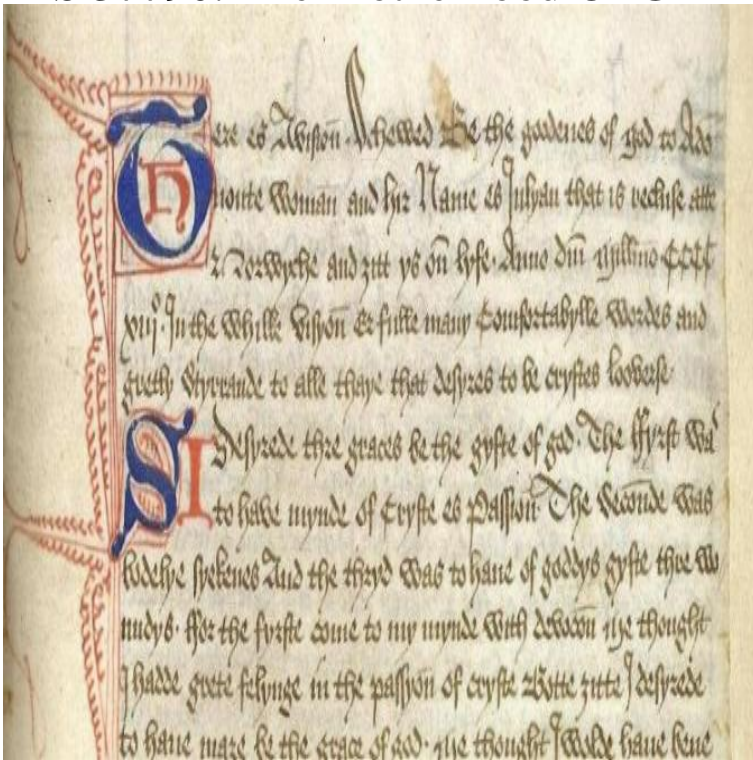 There es Avision Schewed Be the goodenes of god to Ade
uoute Woman and hir Name es Julyan that is recluse atte
Norwyche and ȝitt ys on lyfe. Anno dni millmo CCCC
xiijo. In the whilk visyon Er fulle many Comfortabylle wordes and
gretly Styrrande to alle thaye that desyres to be crystes looverse.
I Desyrede thre graces be the gyfte of god. The ffyrst was
to have mynde of Cryste es Passion. The Seconde was
bodelye syekenes And the thryd was to haue of goddys gyfte thre wo
undys. ffor the fyrste come to my mynde with devocon me thought
I hadde grete felynge in the passyon of cryste Botte ȝitte I desyrede
to haue mare be the grace of god. me thought I wolde haue bene